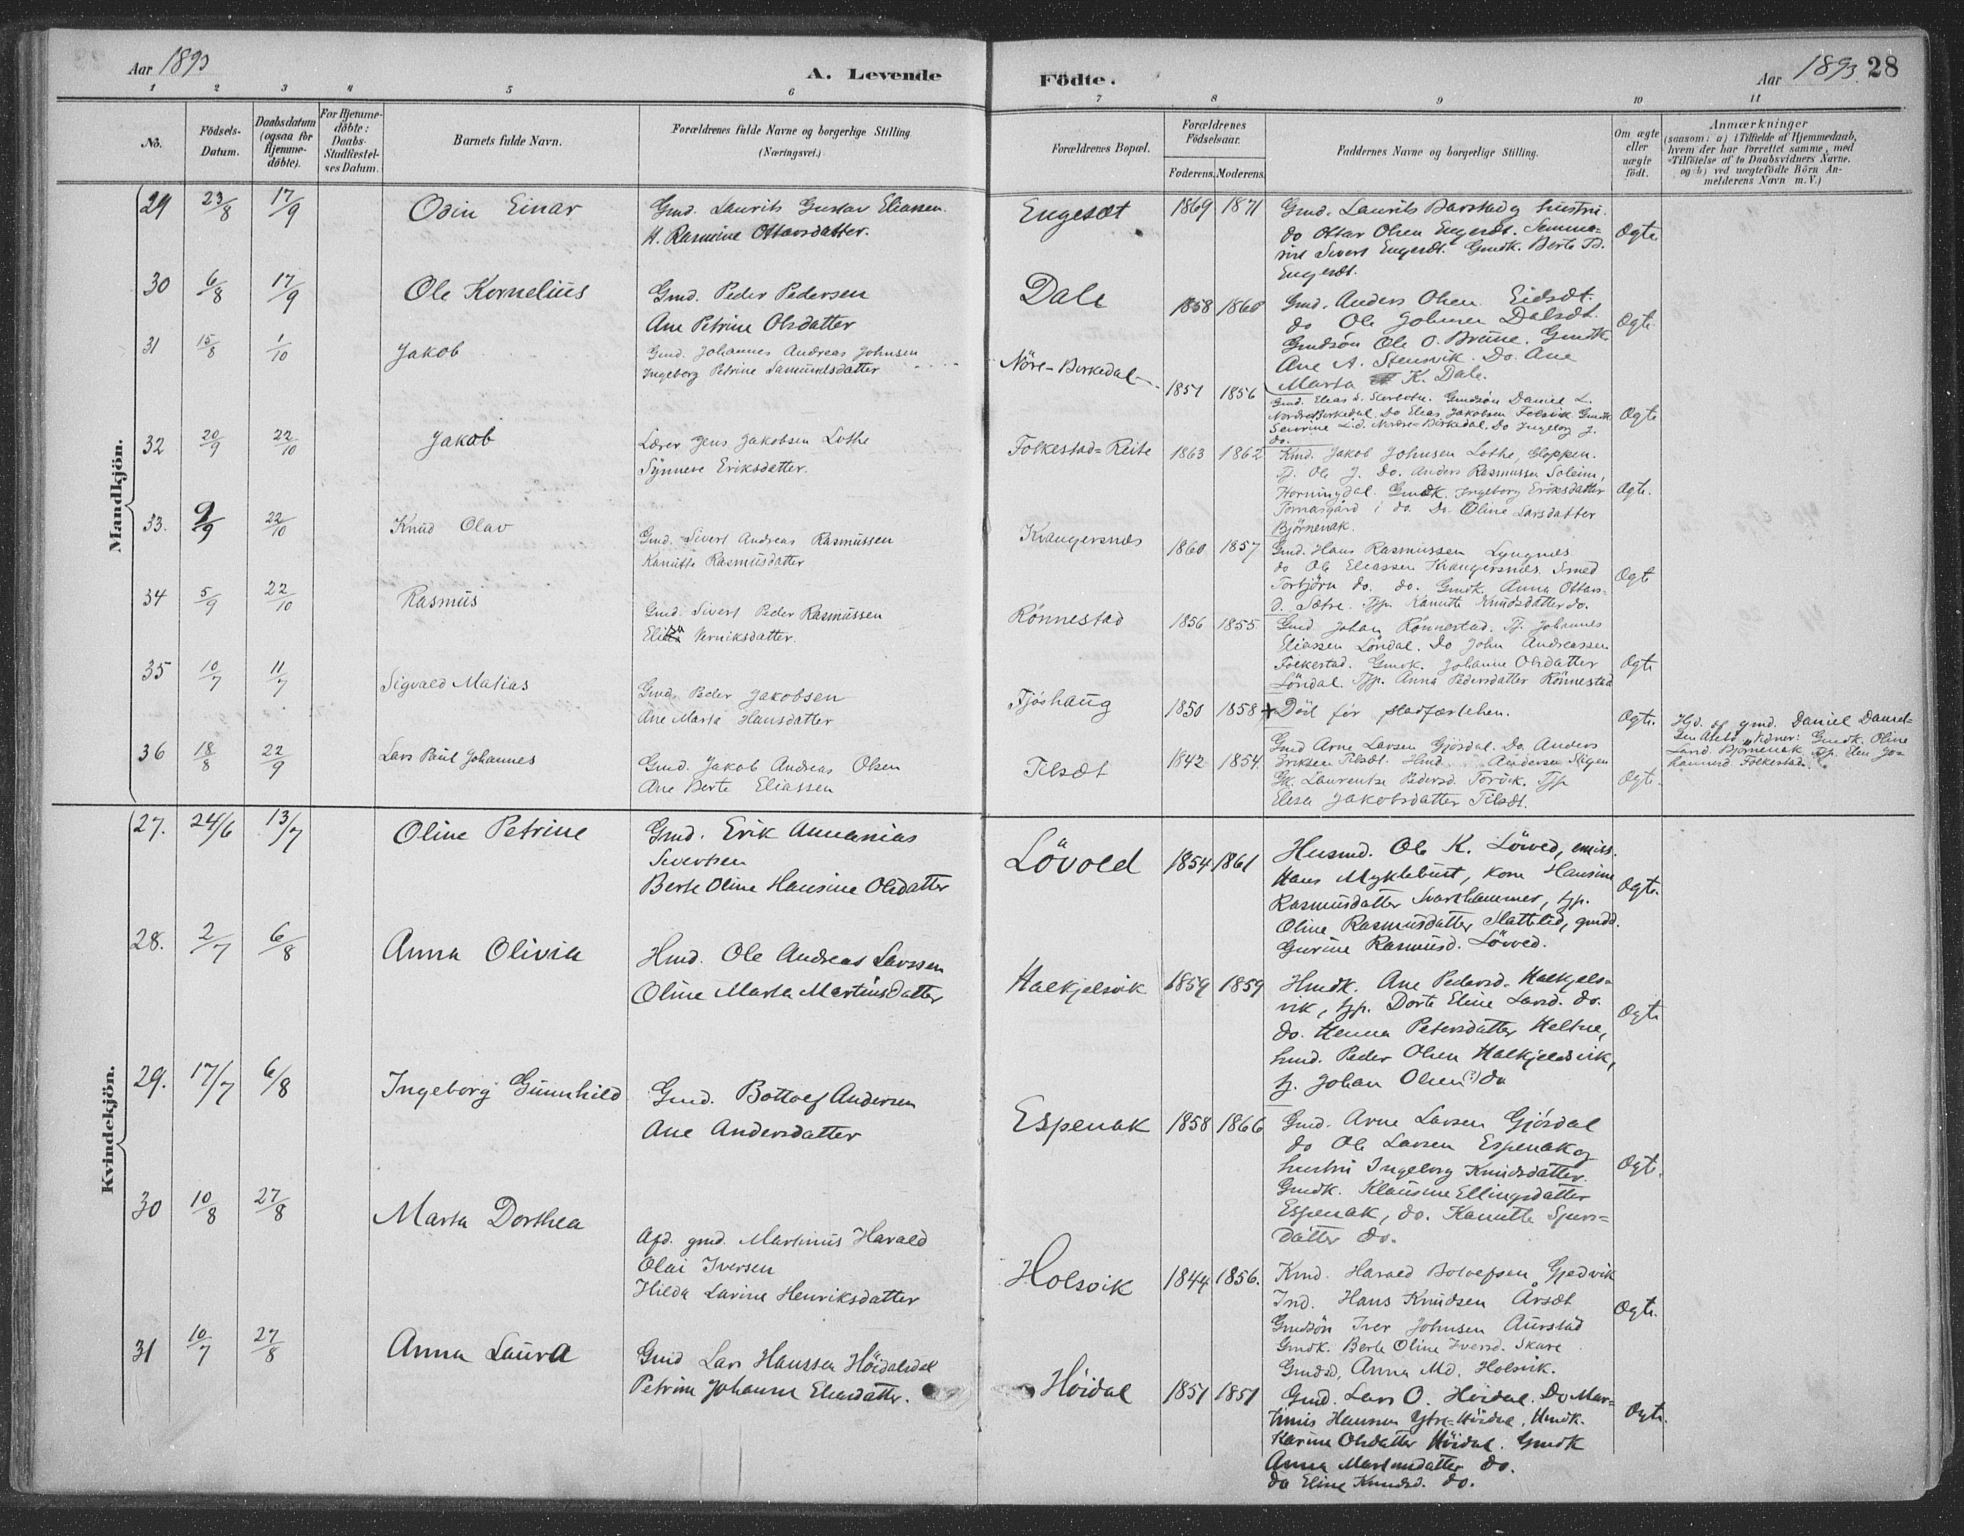 Aar 1893
A. Levende
Födte.
Aar 1893. 28
1 2 3 4 5 6 7 8 9 10 11
No.
Födsels-
Datum.
Daabsdatum
(ogsaa for
Hjemme-
döbte).
For Hjemme-
döbte:
Daabs-
Stadfæstel-
ses Datum.
Barnets fulde Navn.
Forældrenes fulde Navne og borgerlige Stilling
(Næringsvei.)
Forældrenes Bopæl.
Forældrenes
Födselsaar.
Faderens. Moderens.
Faddernes Navne og borgerlige Stilling.
Om ægte
eller
uægte
født.
Anmærkninger
(saasom: a) i Tilfælde af Hjemmedaab,
hvem der har forrettet samme, med
Tilföielse af to Daabsvidners Navne.
og b) ved uægtefödte Börn An-
melderens Navn m. V.)
Mandkjön.
29 23/8 17/9 Odin Einar
Gmd. Laurits Gustav Eliassen.
H. Rasmine Ottarsdatter.
Engesæt 1869 1871
Gmd. Laurits Barstad og hustru.
do Ottar Olsen Engesæt. Semina-
rist Sivert Engesæt. Gmdk. Berte
Engesæt.
Ægte.
30 6/8 17/9 Ole Kornelius
Gmd. Peder Pedersen
Ane Petrine Olsdatter
Dale 1858 1860
Gmd. Anders Olsen Eidsæt.
do Ole Johnsen Dalsæt.
Gmdsön Ole O. Brune. Gmdk
Ane A. Stensvik. Do. Ane
Marta K. Dale.
Ægte.
31 15/8 1/10 Jakob
Gmd. Johannes Andreas Johnsen
Ingeborg Petrine Samuelsdatter
Nöre-Birkedal 1851 1856
Gmd. Elias S. Gmdsön Daniel L.
Nordre Birkedal. Do Elias Jakobsen Gmdk
Severine L.d. Nordre-Birkedal. Do Ingeborg J.
do.
Ægte
32 20/9 22/10 Jakob
Lærer Jens Jakobsen Lothe
Synneve Eriksdatter.
Folkestad-Reite 1863 1862
Kmd. Jakob Johnsen Lothe, Gloppen.
Tj. Ole J. Do. Anders Rasmussen Soleim,
Horningdal. Gmdk. Ingeborg Eriksdatter
Tomasgård i do. Do. Oline Larsdatter
Björnenak.
Ægte.
33. 9/9 22/10 Knud Olav
Gmd. Sivert Andreas Rasmussen
Kanutte Rasmusdatter
Kvangersnæs 1860 1857
Gmd. Hans Rasmussen Lyngnes
do Ole Eliassen Kvangersnes. Smed
Torbjörn do. do. Gmdk. Anna Ottars-
d. Sætre. Tjp. Kanutte Knudsdatter do.
Ægte
34 5/9 22/10 Rasmus
Gmd. Sivert Peder Rasmussen
Verniksdatter.
Rönnestad 1856 1855
Gmd Johan Rönnestad. Tj. Johannes
Eliassen Löndal. Do John Andreassen
Folkestad. Gmdk. Johanne Olsdatter
Löndal. Tjp. Anna Pedersdatter Rönnestad
Ægte
35 10/7 11/7 Sigvald Matias
Gmd. Peder Jakobsen
Ane Marta Hansdatter
Fjöshaug 1850 1858
+ Död för stadfæstelsen.
Ægte.
Hjd. af gmd. Daniel Daniel-
sen Gmdk. Oline
Larsd. Björnenak Tjp. Elen Jo-
hannesd. Folkestad.
36 18/8 22/9 Lars Paul Johannes
Gmd. Jakob Andreas Olsen
Ane Berte Eliassen
Tilsæt 1842 1854.
Gmd Arne Larsen Gjösdal. Do. Anders
Eriksen Tilsæt. Hmd. Andersen
Gk. Laurentse Pedersd. Torvik. Tjp
Elesa Jakobsdatter Tilsæt.
Ægte.
Kvindekjön.
27. 24/6 13/7 Oline Petrine
Gmd. Erik Annanias
Sivertsen
Berte Oline Hansine Olsdatter
Lövold 1854 1861
Husmd. Ole K. Löved, emiss.
Hans Myklebust, kone Hansine
Rasmusdatter Svarthammer, tjp.
Oline Rasmusdatter Slattelid, gmdd.
Gurine Rasmusd. Löved.
Ægte.
28. 2/7 6/8 Anna Olivia
Hmd. Ole Andreas Larssen
Oline Marta Martinsdatter
Halkjelsvik 1859 1859
Hmdk. Ane Pedersd. Halkjels-
vik, tjp. Dorte Eline Larsd. do.
do. Henna Petersdatter Heltne,
hmd. Peder Olsen Halkjelsvik,
tj. Johan Olsen (?) do
Ægte
29. 17/7 6/8 Ingeborg Gunnhild
Gmd. Bottolf Andersen
Ane Andersdatter
Espenak 1858 1866
Gmd. Arne Larsen Gjösdal
do Ole Larsen Espenak og
hustru Ingeborg Knudsdatter.
Gmdk. Klausine Ellingsdatter
Espenak, do. Kanutte Sjurs-
datter do.
Ægte.
30 10/8 27/8 Marta Dorthea
Afd. gmd. Martinus Harald
Olai Iversen
Hilda Larine Henriksdatter
Holsvik 1844 1856.
Kmd. Harald Botolfsen Gjedvik
Ind. Hans Knudsen Årsæt
Gmdsön Iver Johnsen Aurstad
Gmdk. Berte Oline Iversd. Skare
Gmdsd, Anna Md. Holsvik.
Ægte.
31 10/7 27/8 Anna Laura
Gmd Lars Hanssen Höidalsdal
Petrine Johanne Eliasdatter.
Höidal 1851 1851
Gmd. Lars O. Höidal. Do Mar-
tinus Hansen Ytre-Höidal, Hmdk.
Karine Olsdatter Höidal. Gmdk
Anna Martinusdatter do.
do Eline Knudsd. do.
Ægte.